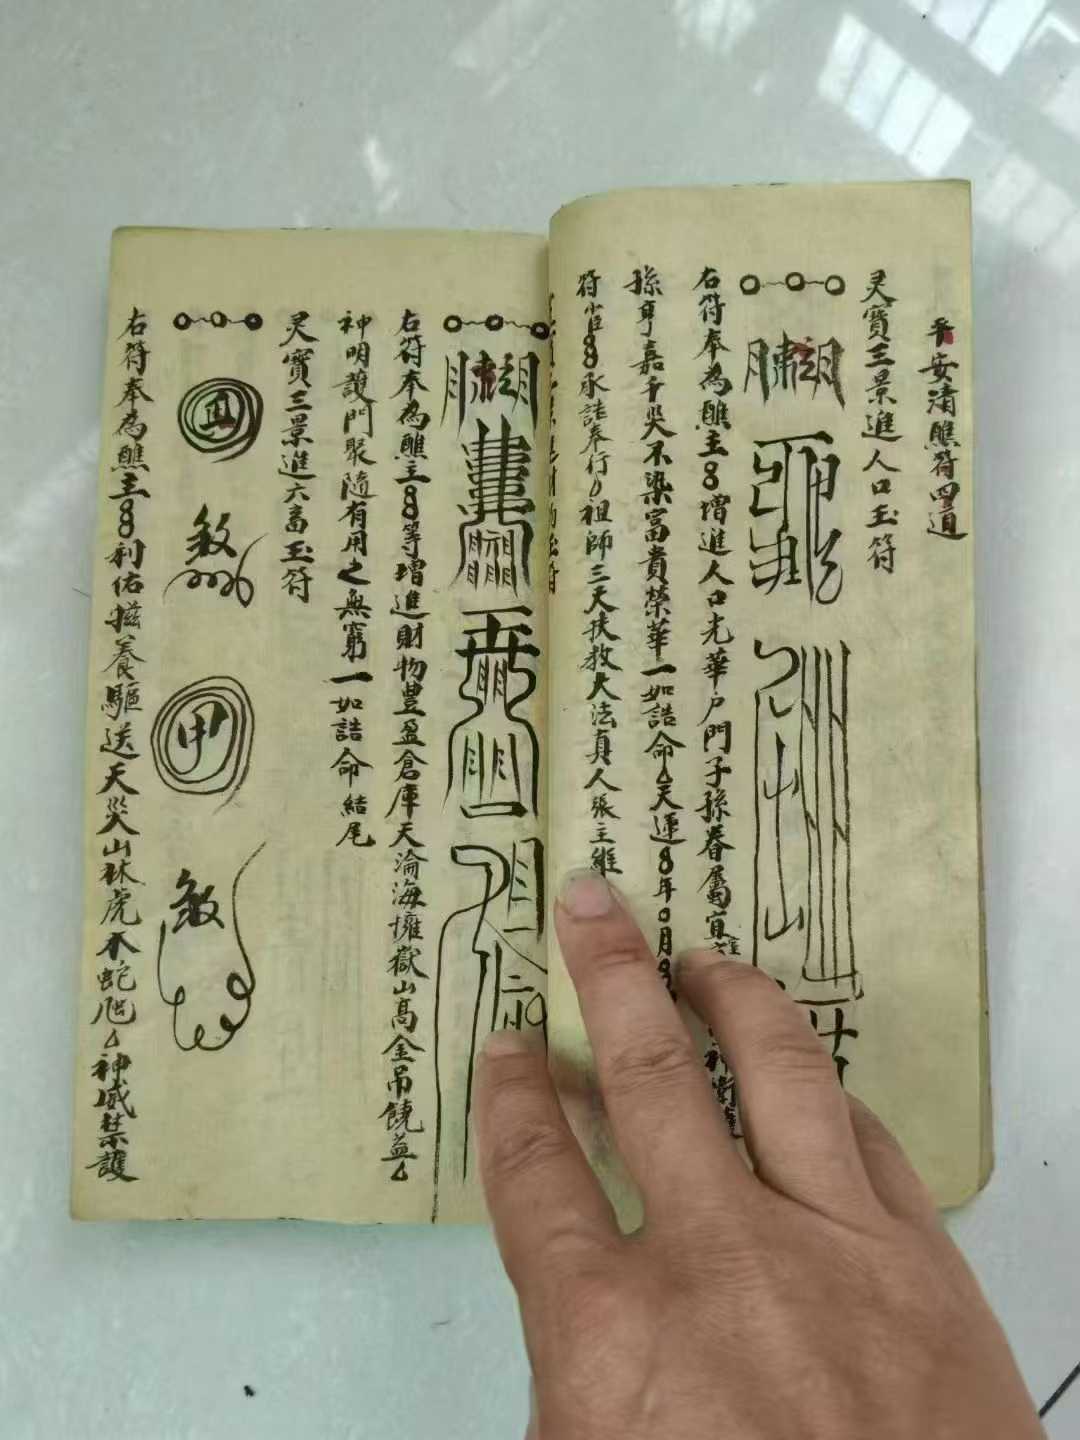 平安清醮符四道
灵寶三景進人口玉符
右符奉為醮主8增進人口光華戶門子孫眷屬宜
孫亨嘉千災不染富貴榮華一如誥命天運8年0月8
符 8承誥奉行祖師三天扶教大法真人張主維
右符奉為醮主8等增進財物豊盈倉庫天淪海擁嶽山高金吊饒益
神明護門聚隨有用之無窮一如誥命結尾
灵寶三景進六畜玉符
敕
甲
敕
右符奉為醮主8利佑孳養驅送天災山林虎不蛇 神威禁護